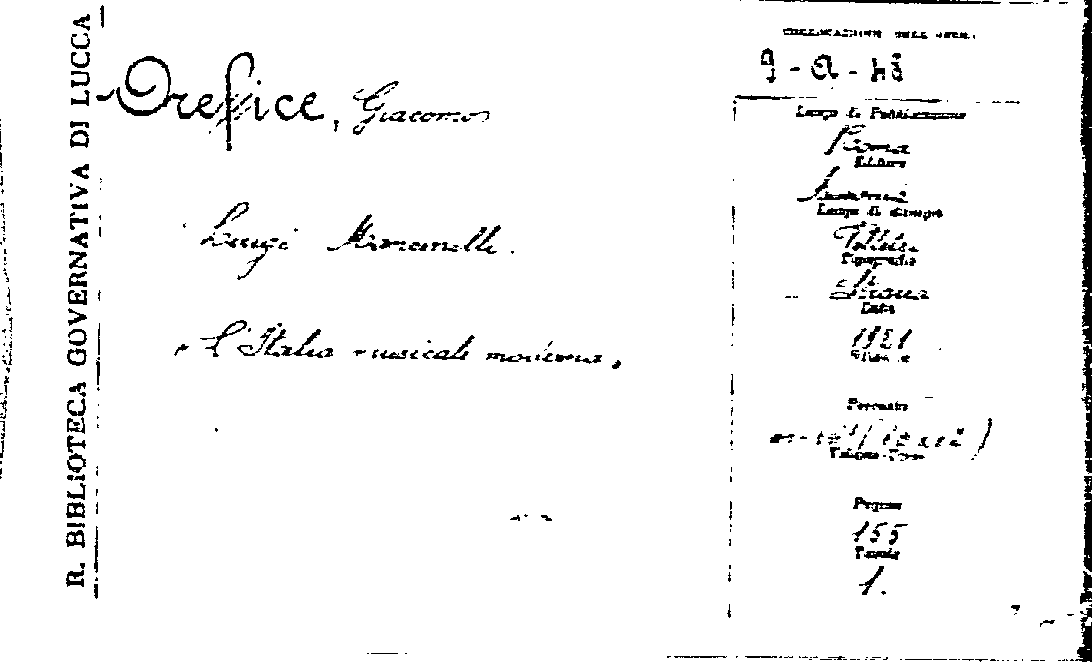 R. BIBLIOTECA GOVERNATIVA DI LUCCA
Orefice, Giacomo
Luigi Mancinelli.
"L'Italia musicale moderna"
COLLOCAZIONE DELL'OPERA
9-a-
Luogo di Pubblicazione
Roma
Editore
Luogo di stampa
Tipografia
Data
1921
Formato
Volume-Tomo
Pagine
155
Tavole
1.